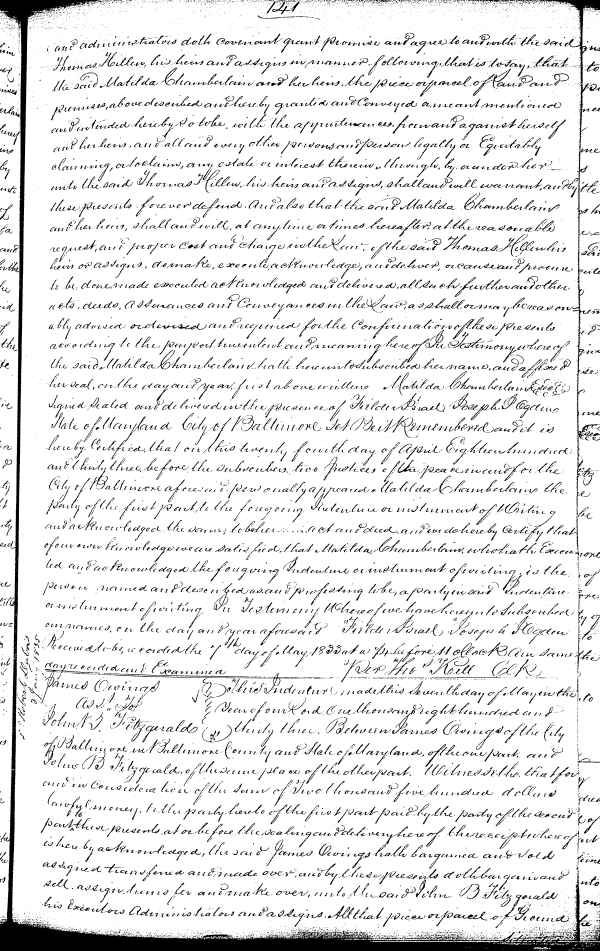 141
and administrators doth covenant grant promise and agree to and with the said
Thomas Hillen, his heirs and assigns in manner following, that is to say, that
the said Matilda Chamberlain and her heirs, the piece or parcel of Land and
premises, above described and hereby granted and Conveyed or meant mentioned
and intended hereby so to be, with the appurtenances from and against herself
and her heirs, and all and every other persons and person legally or Equitably
claiming, or to claim, any estate or interest therein through, by, or under her
unto the said Thomas Hillen, his heirs and assigns, shall and will warrant, and by
these presents forever defend. And also that the said Matilda Chamberlain
and her heirs, shall and will, at any time or times hereafter, at the reasonable
request, and proper cost and charge in the Law, of the said Thomas Hillen his
heirs or assigns, do make, execute, acknowledge, and deliver, or cause and procure
to be done made executed acknowledged and delivered, all such further and other
acts, deeds, assurances and Conveyances in the Law, as shall or may be reason=
ably advised or devised and required for the Confirmation of these presents
according to the purport true intent and meaning hereof In Testimony whereof
the said Matilda Chamberlain, hath hereunto subscribed her name, and affixed
her seal, on the day and year first above written Matilda Chamberlain
Signed Sealed and delivered in the presence of Fielder Israel Joseph Ogden
State of Maryland City of Baltimore Sct Be it Remembered and it is
hereby Certified, that on this twenty fourth day of April Eighteen hundred
and thirty three, before the subscribers, two Justices of the peace in and for the
City of Baltimore aforesaid personally appeared Matilda Chamberlain the
party of the first part, to the foregoing Indenture or instrument of Writing
and acknowledged the same, to be her act and deed, and we do hereby Certify that
of our own knowledge we are satisfied, that Matilda Chamberlain, who hath Execu
ted and acknowledged the foregoing Indenture or instrument of writing, is the
person named and described as and professing to be, a party in said Indenture
or instrument of writing In Testimony Whereof we have hereunto Subscribed
our names, on the day and year aforesaid Fielder Israel Joseph Ogden
Received to be recorded the 7th day of May 1833 at before 11 oClock A m same
day recorded and Examined Per Tho Kell Clk
James Owings
Ass to
John B. Fitzgerald
This Indenture made this Seventh day of May in the
Year of our Lord One thousand eight hundred and
thirty three, Between James Owings of the City
of Baltimore in Baltimore County and State of Maryland, of the one part, and
John B Fitzgerald, of the same place of the other part. Witnesseth, that for
and in consideration of the sum of Two thousand five hundred dollars
lawful money, to the party hereto of the first part paid by the party of the second
part these presents at or before the sealing and delivery hereof the receipt whereof
is hereby acknowledged, the said James Owings hath bargained and sold
assigned transfered and made over, and by these presents doth bargain and
sell, assign, transfer and make over, unto the said John B Fitzgerald
his Executors Administrators and assigns. All that piece or parcel of Ground